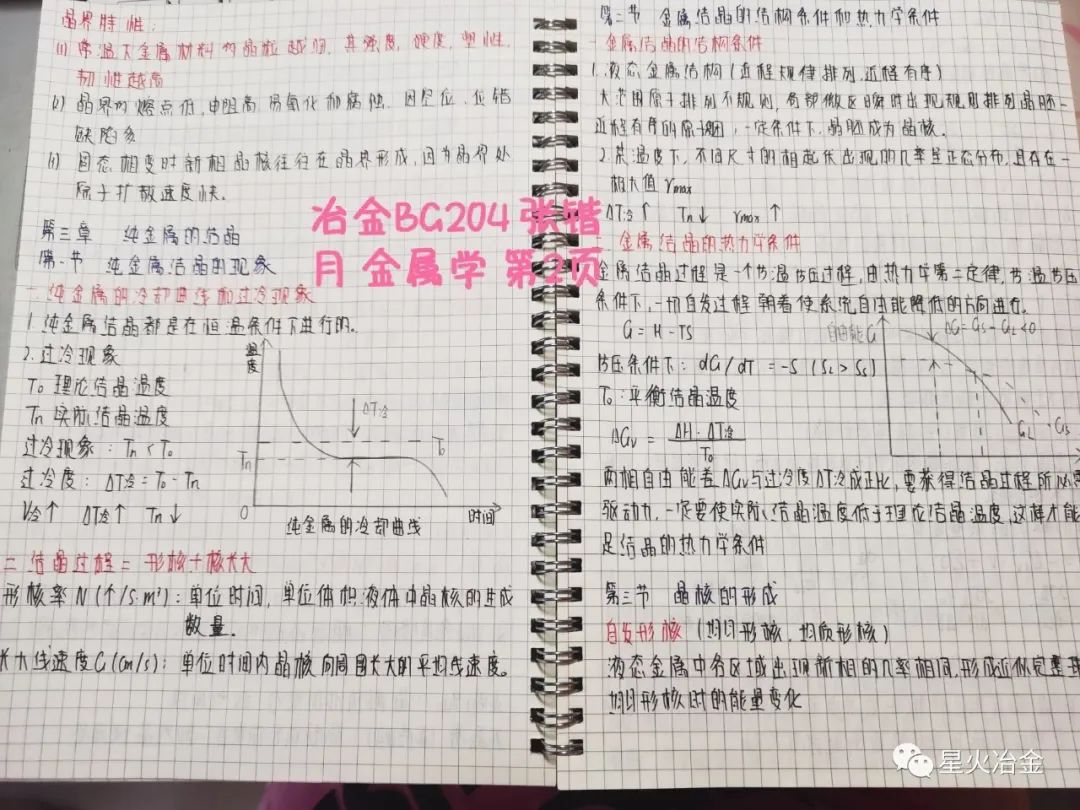 晶界特性:
(1) 常温下金属材料的晶粒越细,其强度,硬度,塑性,
韧性越高
(2) 晶界的熔点低,电阻高,易氧化和腐蚀,因空位,位错
缺陷多
(3) 固态相变时新相晶核往往在晶界形成,因为晶界处
原子扩散速度快。
第三章 纯金属的结晶
第一节 纯金属结晶的现象
一.纯金属的冷却曲线和过冷现象
1.纯金属结晶都是在恒温条件下进行的。
2.过冷现象
T0 理论结晶温度
Tn 实际结晶温度
过冷现象:Tn<T0
过冷度:ΔT冷=T0-Tn
V冷↑ ΔT冷↑ Tn↓
温度
ΔT冷
Tn
T0
0
时间
纯金属的冷却曲线
二 结晶过程=形核+核长大
形核率N(个/s·m³):单位时间,单位体积液体中晶核的生成
数量。
长大线速度G(cm/s):单位时间内晶核向周围长大的平均线速度。
冶金BG204 张锴
月 金属学 第2页
第二节 金属结晶的结构条件和热力学条件
一 金属结晶的结构条件
1.液态金属结构(近程规律排列,近程有序)
大范围原子排列不规则,局部微区瞬时出现规则排列晶胚=
近程有序的原子团,一定条件下,晶胚成为晶核。
2.某温度下,不同尺寸的相起伏出现的几率呈正态分布,且存在一
极大值 rmax
ΔT冷↑ Tn↓ rmax↑
二 金属结晶的热力学条件
金属结晶过程是一个等温等压过程,由热力学第二定律,等温等压
条件下,一切自发过程朝着使系统自由能降低的方向进行。
G=H-TS
等压条件下:dG/dT=-S (SL>SS)
T0:平衡结晶温度
ΔGv=ΔH·ΔT冷/T0
自由能G
ΔG=GS-GL<0
GL
GS
两相自由能差ΔGv与过冷度ΔT冷成正比,要获得结晶过程所必需
驱动力,一定要使实际结晶温度低于理论结晶温度,这样才能
是结晶的热力学条件
第三节 晶核的形成
自发形核(均匀形核,均质形核)
液态金属中各区域出现新相的几率相同,形成近似完整球
均匀形核时的能量变化
星火冶金